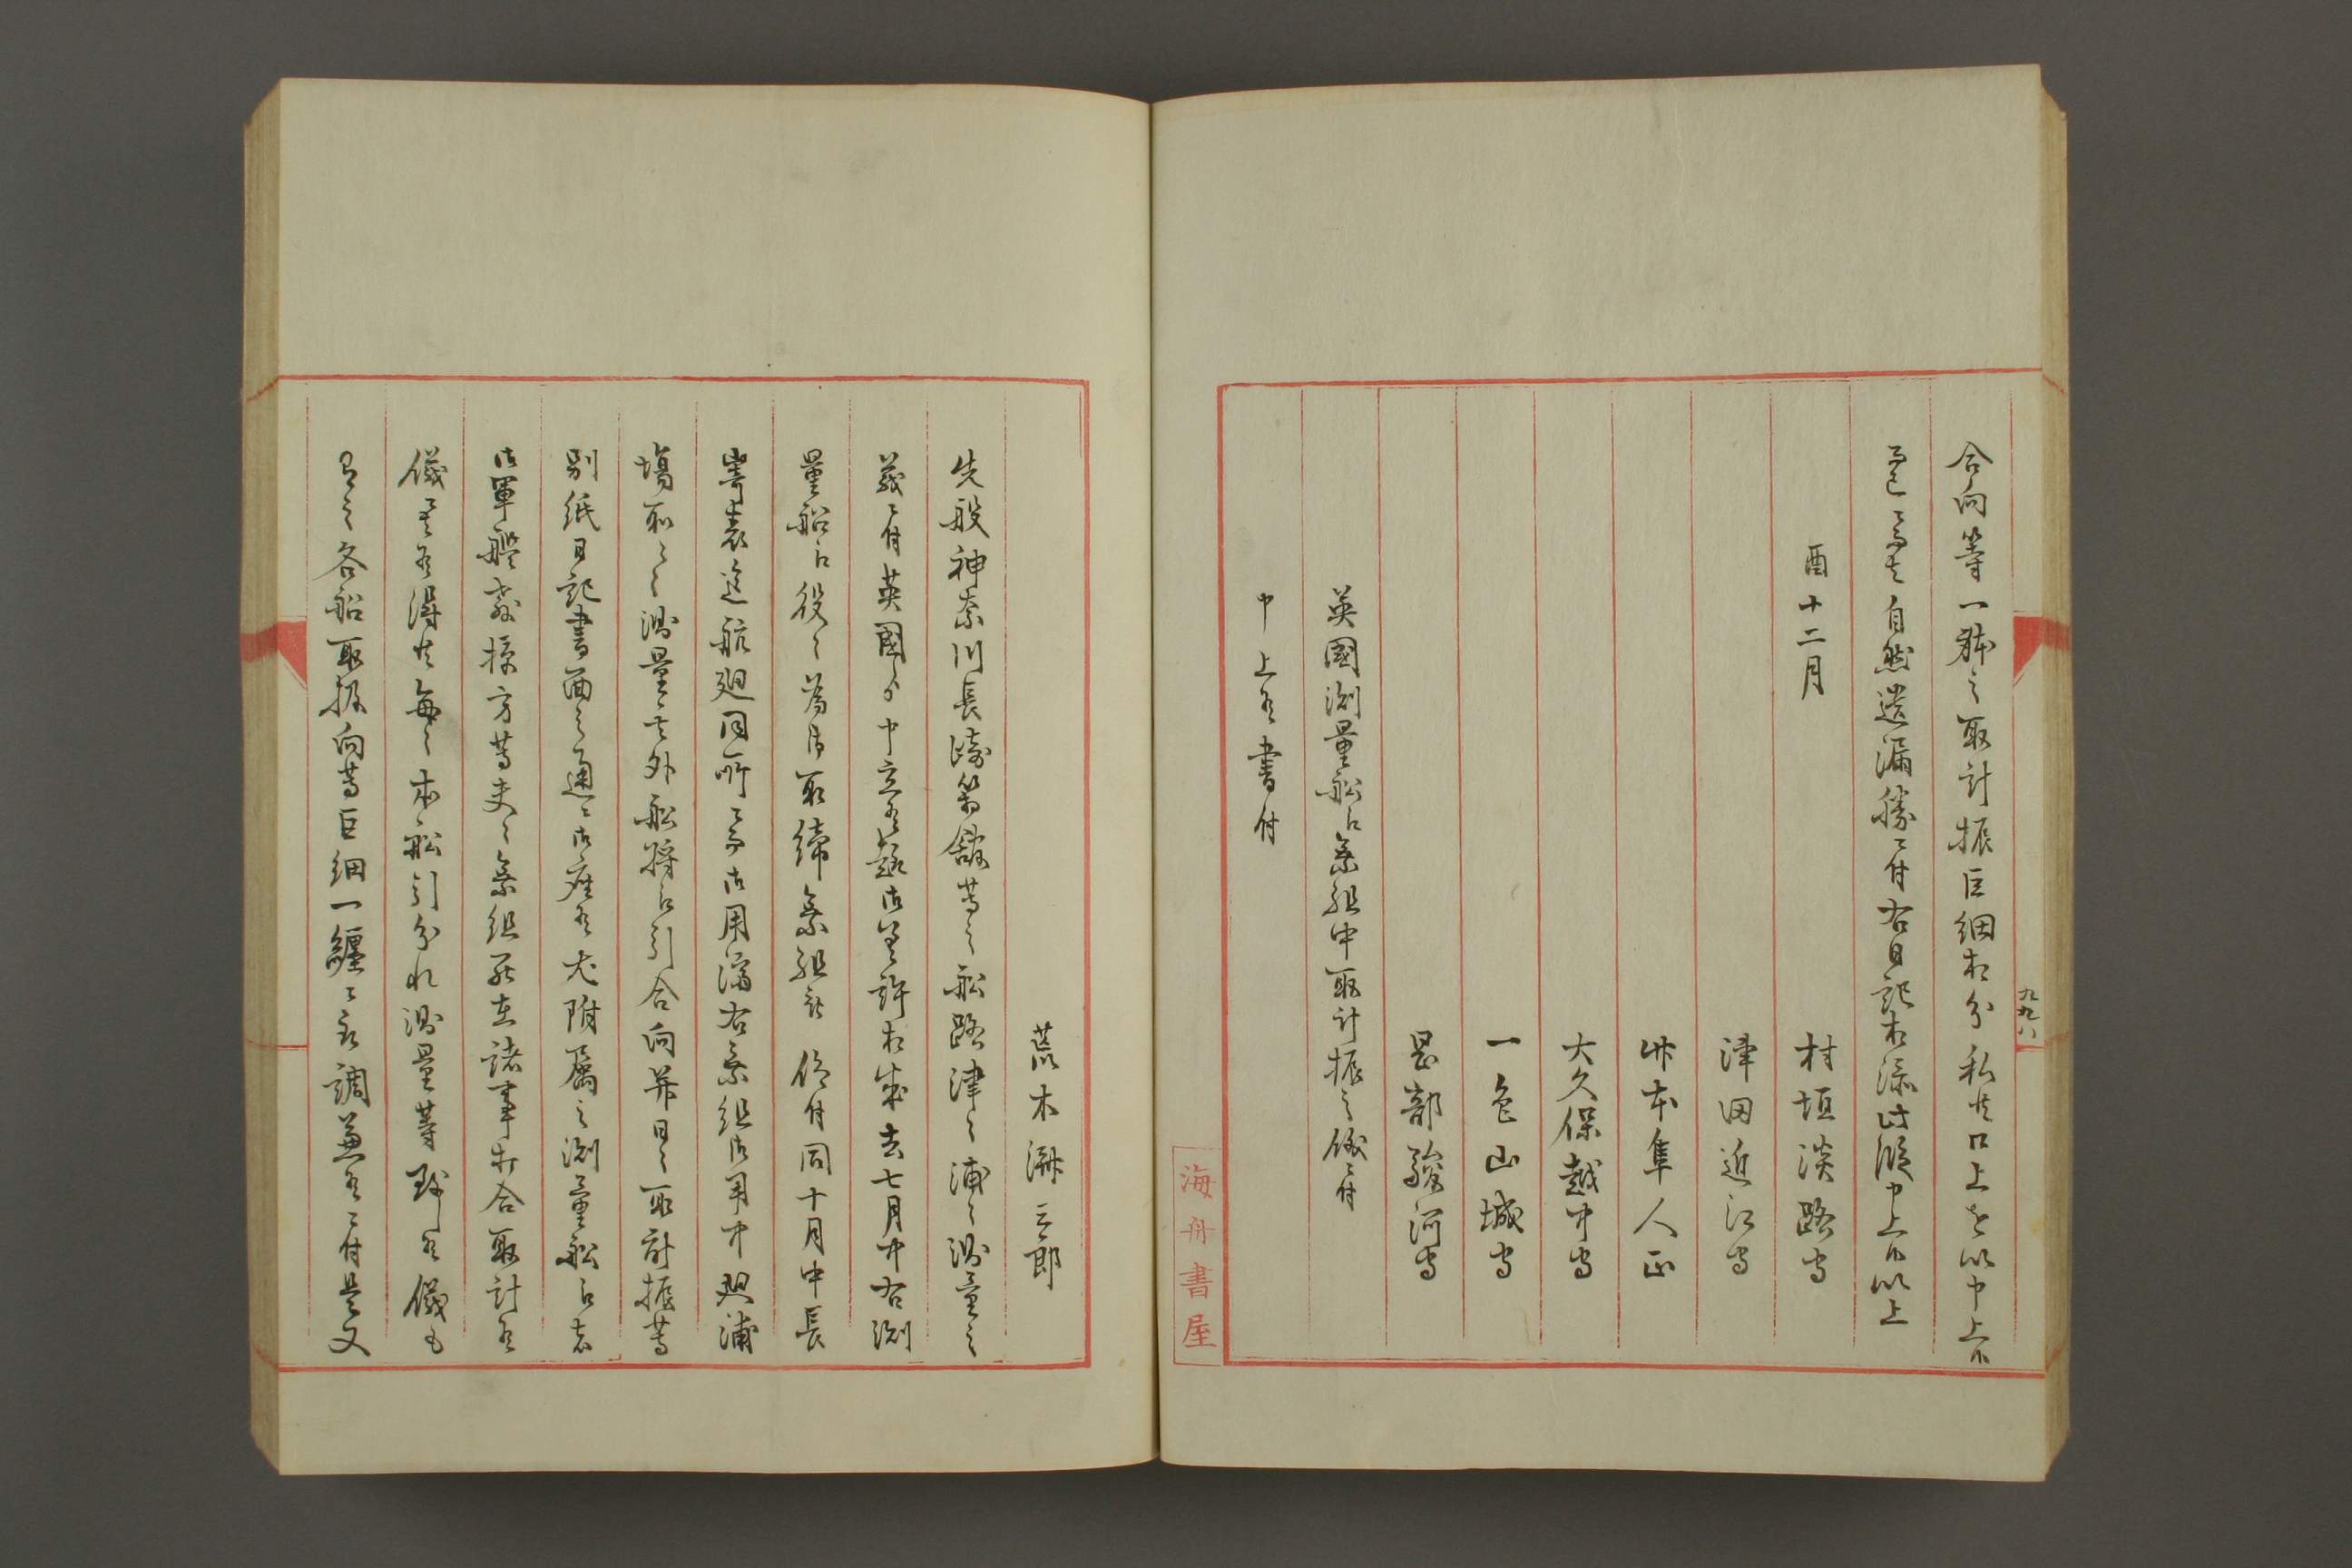 九九八
合向等一躰之取計振巨細相分私共口上を以申上候
而已ニ而者自然遺漏勝ニ付右日記相添此段申上候以上
酉十二月
村垣淡路守
津田近江守
竹本隼人正
大久保越中守
一色山城守
岡部駿河守
英國測量船江乗組中取計振之儀ニ付
申上候書付
海舟書屋
荒木済三郎
先般神奈川長崎箱館等之船路津々浦々測量之
義ニ付英國ゟ申立候趣御差許相成去七月中右測
量船江役々為御取締乗組被仰付同十月中長
崎表迄航廻同所ニ而御用濟右乗組御用中廻浦
場所々々測量其外船將江引合向并日々取計振等
別紙日記書面之通ニ御座候尤附属之測量船江者
御軍艦教授方等夫々乗組罷在諸事打合取計候
儀ニ者候得共毎々本船引分れ測量等致候儀も
有之各船取扱向等巨細一纏ニ取調兼候ニ付是又